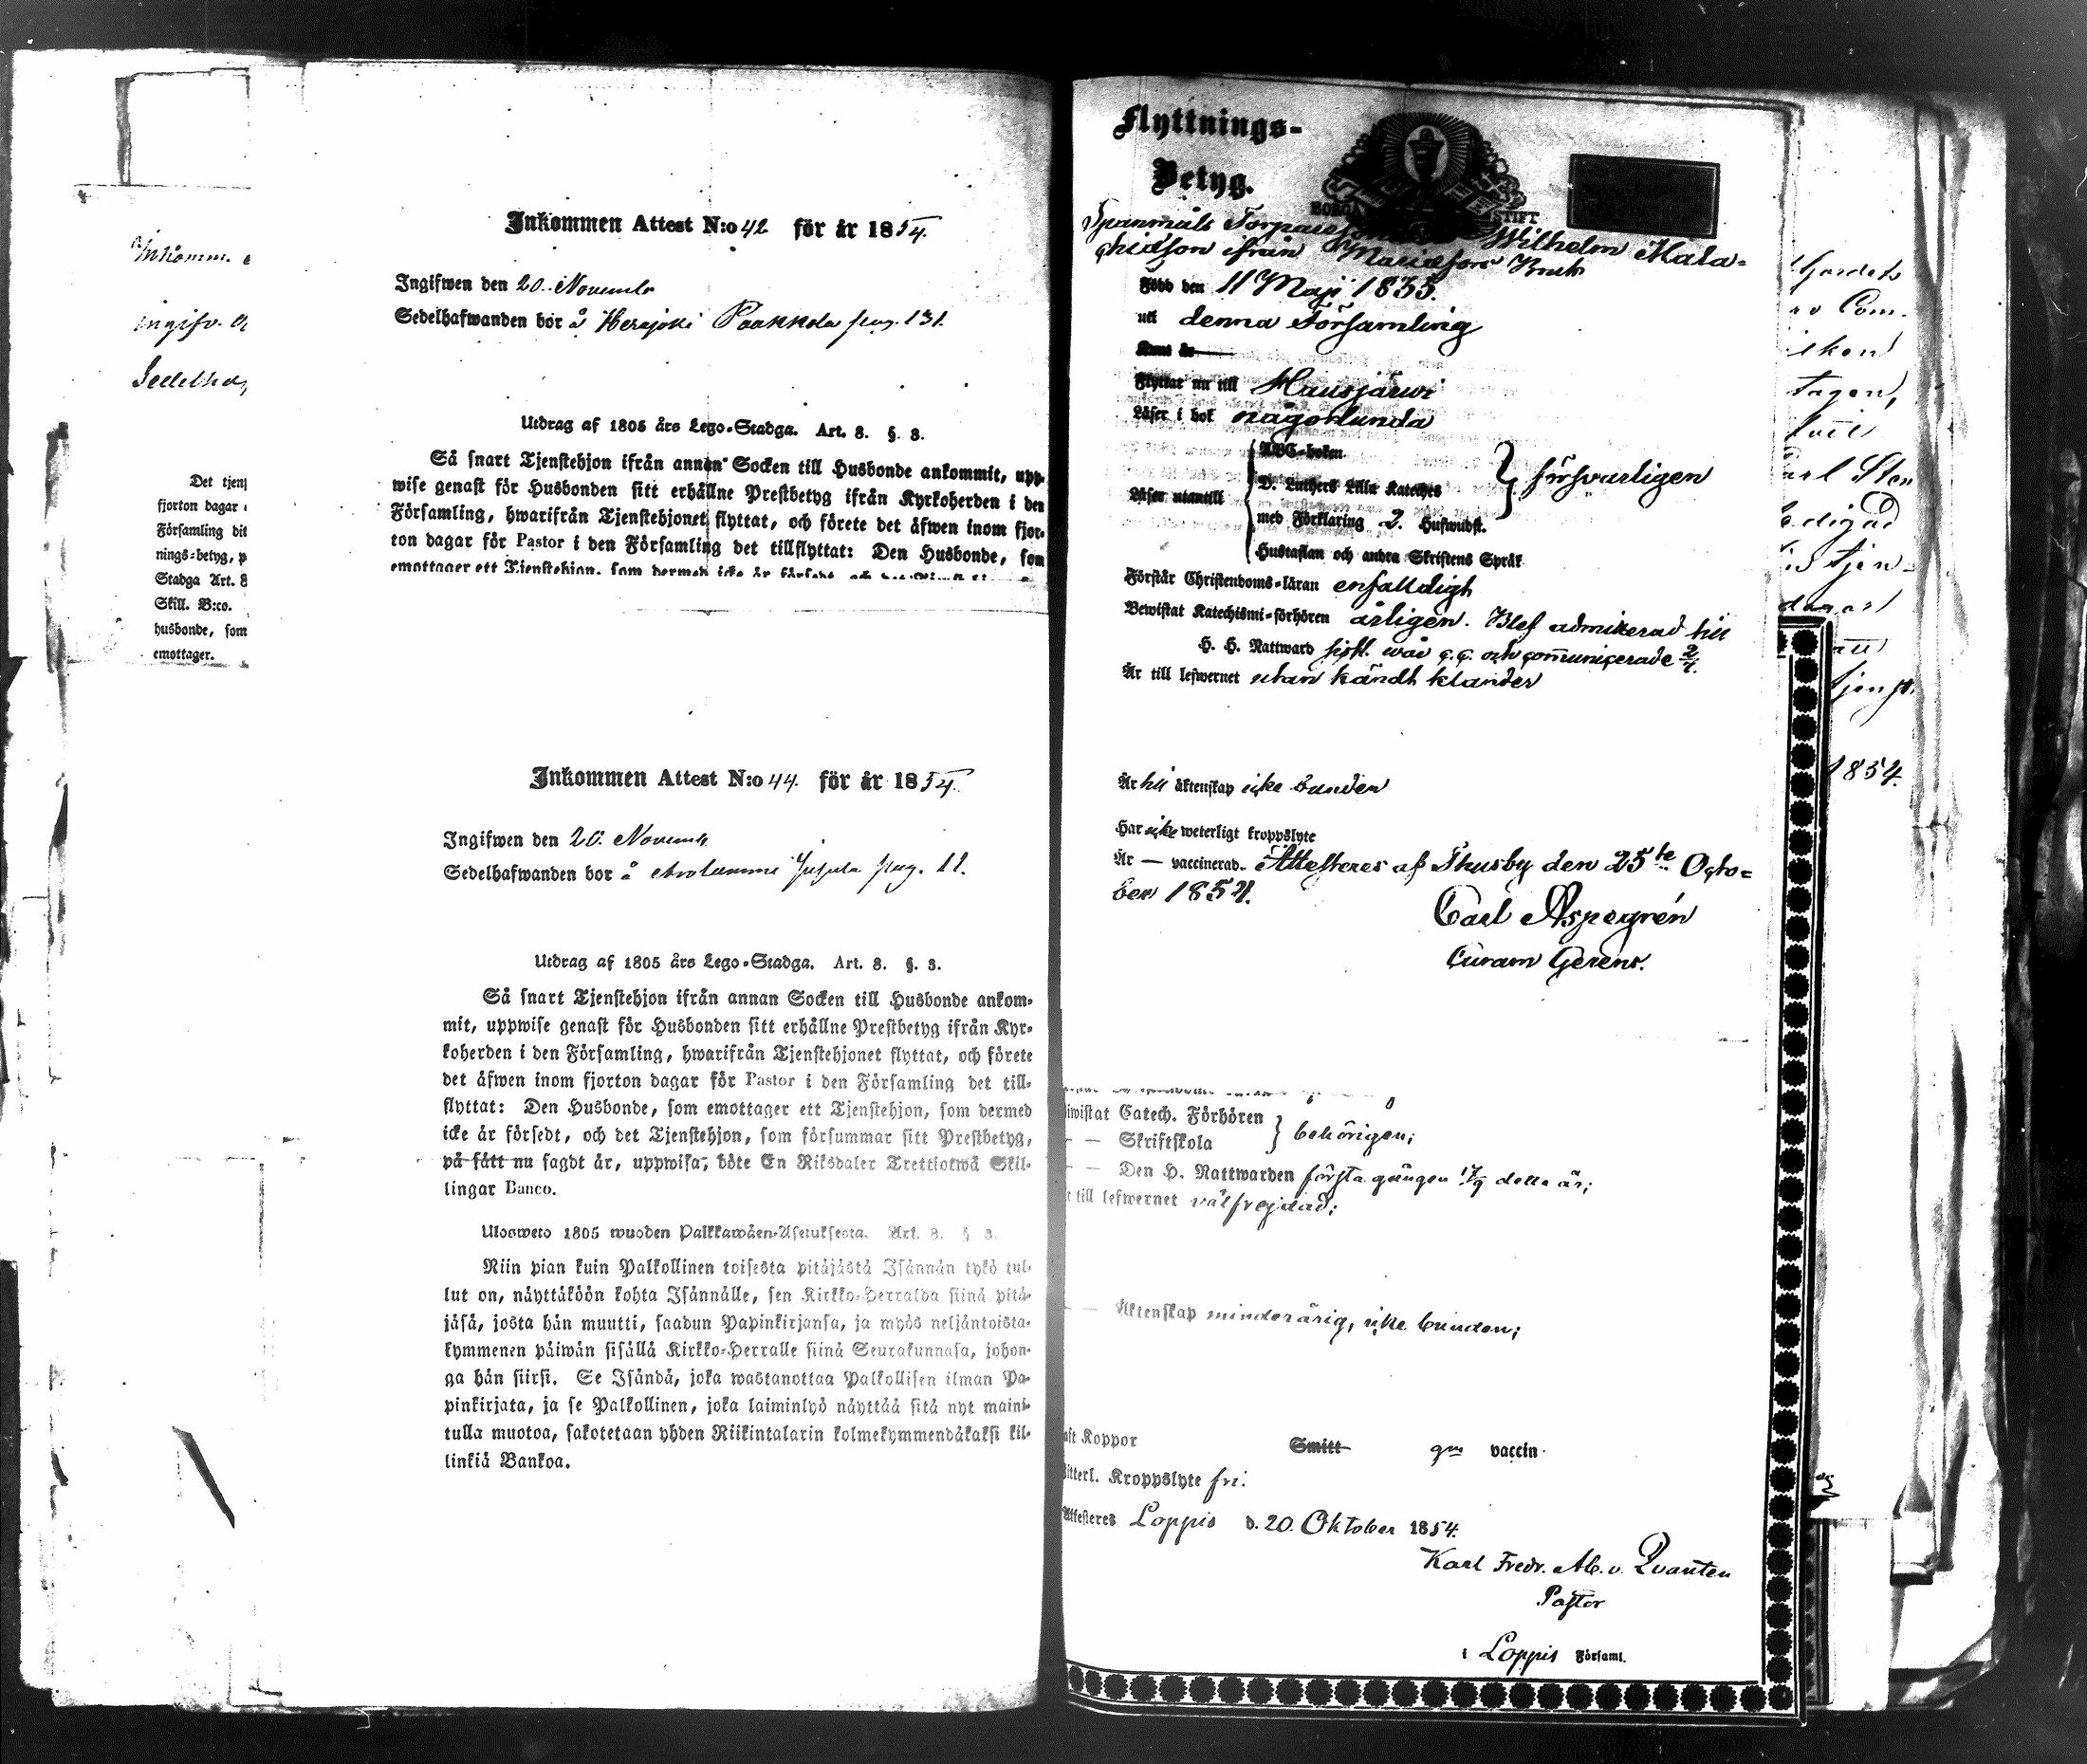 Inkomm.
ingifv.
Sedelha
Det tjen
fjorton dagar
Församling dit
nings-betyg, p
Stadga Art. 8
Skill. B:co.
husbonde, som
emottager.
Inkommen Attest N:o 42 för år 1854.
Ingifwen den 20. Novembr
Sedelhafwanden bor å Herajoki Paakkola pag. 131.
Utdrag af 1805 års Lego-Stadga. Art. 8. §. 3.
Så snart Tjenstehjon ifrån annan Socken till Husbonde ankommit, upp-
wise genast för Husbonden sitt erhållne Prestbetyg ifrån Kyrkoherden i den
Församling, hwarifrån Tjenstehjonet flyttat, och förete det äfwen inom fjor-
ton dagar för Pastor i den Församling det tillflyttat: Den Husbonde, som
emottager ett Tjenstehjon, som dermed icke är försedt, och det
Inkommen Attest N:o 44. för år 1854.
Ingifwen den 20. Novembr
Sedelhafwanden bor å pag. 11.
Utdrag af 1805 års Lego-Stadga. Art. 8. §. 3.
Så snart Tjenstehjon ifrån annan Socken till Husbonde ankom-
mit, uppwise genast för Husbonden sitt erhållne Prestbetyg ifrån Kyr-
koherden i den Församling, hwarifrån Tjenstehjonet flyttat, och förete
det äfwen inom fjorton dagar för Pastor i den Församling det till-
flyttat: Den Husbonde, som emottager ett Tjenstehjon, som dermed
icke är försedt, och det Tjenstehjon, som försummar sitt Prestbetyg,
på sätt nu sagdt är, uppwisa, böte En Riksdaler Trettiotwå Skil-
lingar Banco.
Ulosweto 1805 wuoden Palkkawäen-Asetuksesta. Art. 8. § 3.
Niin pian kuin Palkollinen toisesta pitäjästä Isännän tykö tul-
lut on, näyttäköön kohta Isännälle, sen Kirkko-Herralda siinä pitä-
jäsä, josta hän muutti, saadun Papinkirjansa, ja myös neljäntoista-
kymmenen päiwän sisällä Kirkko-Herralle siinä Seurakunnasa, johon-
ga hän siirsi. Se Isändä, joka wastanottaa Palkollisen ilman Pa-
pinkirjata, ja se Palkollinen, joka laiminlyö näyttää sitä nyt maini-
tulla muotoa, sakotetaan yhden Riikintalarin kolmekymmendäkaksi kil-
linkiä Bankoa.
Flyttnings-
Betyg.
BORGÅ STIFT
Spanmåls Torpare Wilhelm Mala-
chiasson ifrån Mariæfors Bruk
Född den 11 Maji 1835.
uti denna Församling
Kom år
Flyttar nu till Hausjärwi
Läser i bok någorlunda
ABC-boken
Läser utantill D. Luthers Lilla Kateches försvarligen
med Förklaring 2. Hufwudst.
Hustaflan och andra Skriftens Språk
Förstår Christendoms-läran enfaldigt
Bewistat Katechismi-förhören årligen. Blef admitterad till
H. H. Nattward sistl. wår c.c. och communicerade 2/7.
Är till lefwernet utan kändt klander
Är till äktenskap icke bunden
Har icke weterligt kroppslyte
Är — vaccinerad. Attesteres af Thusby den 25te Octo-
ber 1854.
Carl Aspegrén
Curam Gerens.
iwistat Catech. Förhören
— — Skriftskola behörigen;
— — Den H. Nattwarden första gången 17/9 detta år;
r till lefwernet välfrejdad;
— — Äktenskap minderårig, icke bunden;
aft Koppor Smitt gm vaccin.
itterl. Kroppslyte fri.
Attesteres Loppis d. 20. Oktober 1854.
Karl Fredr. Ab. v. Qvanten
Pastor
i Loppis Församl.
Com.
tagen,
Carl Sten
edigad
tjen-
dagar
att
tjenst
1854.